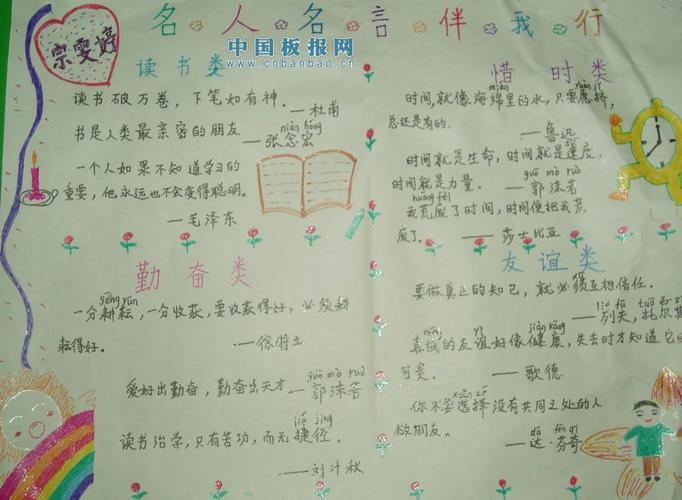 宗雯婷
名人名言伴我行
中国板报网
www.cnbanbao.cn
读书类
读书破万卷，下笔如有神。——杜甫
书是人类最亲密的朋友
niàn hóng
——张念宏
一个人如果不知道学习的
重要，他永远也不会变得聪明。
——毛泽东
勤奋类
gēng yún
一分耕耘，一分收获，要收获得好，必须耕
耘得好。
——徐特立
guō mò ruò
爱好出勤奋，勤奋出天才——郭沫若
jié jìng
读书治学，只有苦功，而无捷径。
——刘斗秋
惜时类
mián jǐ
时间，就像海绵里的水，只要愿挤，
总还是有的。
——鲁迅
时间就是生命，时间就是速度，
guō mò ruò
时间就是力量。——郭沫若
huāng fèi
我荒废了时间，时间便把我荒
废了。——莎士比亚
友谊类
要做真正的知己，就必须互相信任。
——列夫，托尔斯
jiàn kāng
真诚的友谊好像健康，失去时才知道它
可贵。——歌德
xuǎn zé
你不要选择没有共同之处的人
做朋友。
dá fēn qí
——达·芬奇